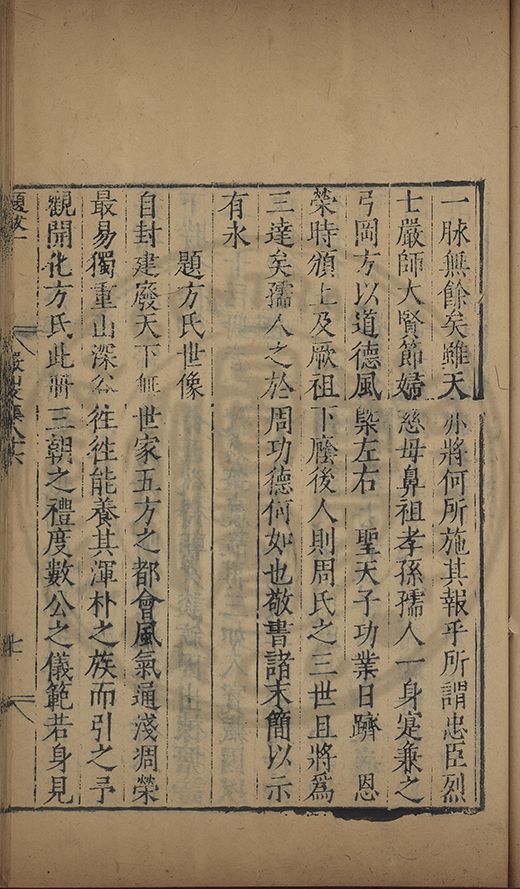 一脉無餘矣雖天亦將何所施其報乎所謂忠臣烈
士嚴師大賢節婦慈母鼻祖孝孫孺人一身寔兼之
弓岡方以道德風槩左右 聖天子功業日躋 恩
榮時頒上及厥祖下廕後人則周氏之三世且將爲
三達矣孺人之於周功德何如也敬書諸末簡以示
有永
題方氏世像
自封建廢天下無世家五方之都會風氣通淺凋榮
最易獨重山深谷徃徃能養其渾朴之族而引之予
觀開化方氏此冊三朝之禮度數公之儀範若身見
題跋一
七